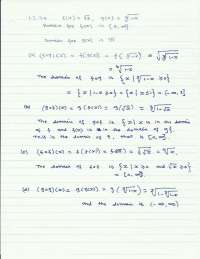 f(x) = √x, g(x) = ∛1-x
Domain for f(x) is [0, ∞)
Domain for g(x) is
(a) (f∘g)(x) = f(g(x)) = f(∛1-x) = √∛1-x
= ⁶√1-x
The domain of f∘g is {x | ∛1-x ≥0}
= {x | 1-x ≥0} = {x | x ≤1} = (-∞, 1]
(b) (g∘f)(x) = g(f(x)) = g(√x) = ∛1-√x
The domain of g∘f is {x | x is in domain
of f and f(x) is in the domain of g}.
This is the domain of f, that is [0, ∞).
(c) (f∘f)(x) = f(f(x)) = f(√x) = √√x = ⁴√x.
The domain of f∘f is {x | x ≥0 and √x ≥0}
= [0, ∞).
(d) (g∘g)(x) = g(g(x)) = g(∛1-x) = ∛1-∛1-x
and the domain is (-∞, ∞)